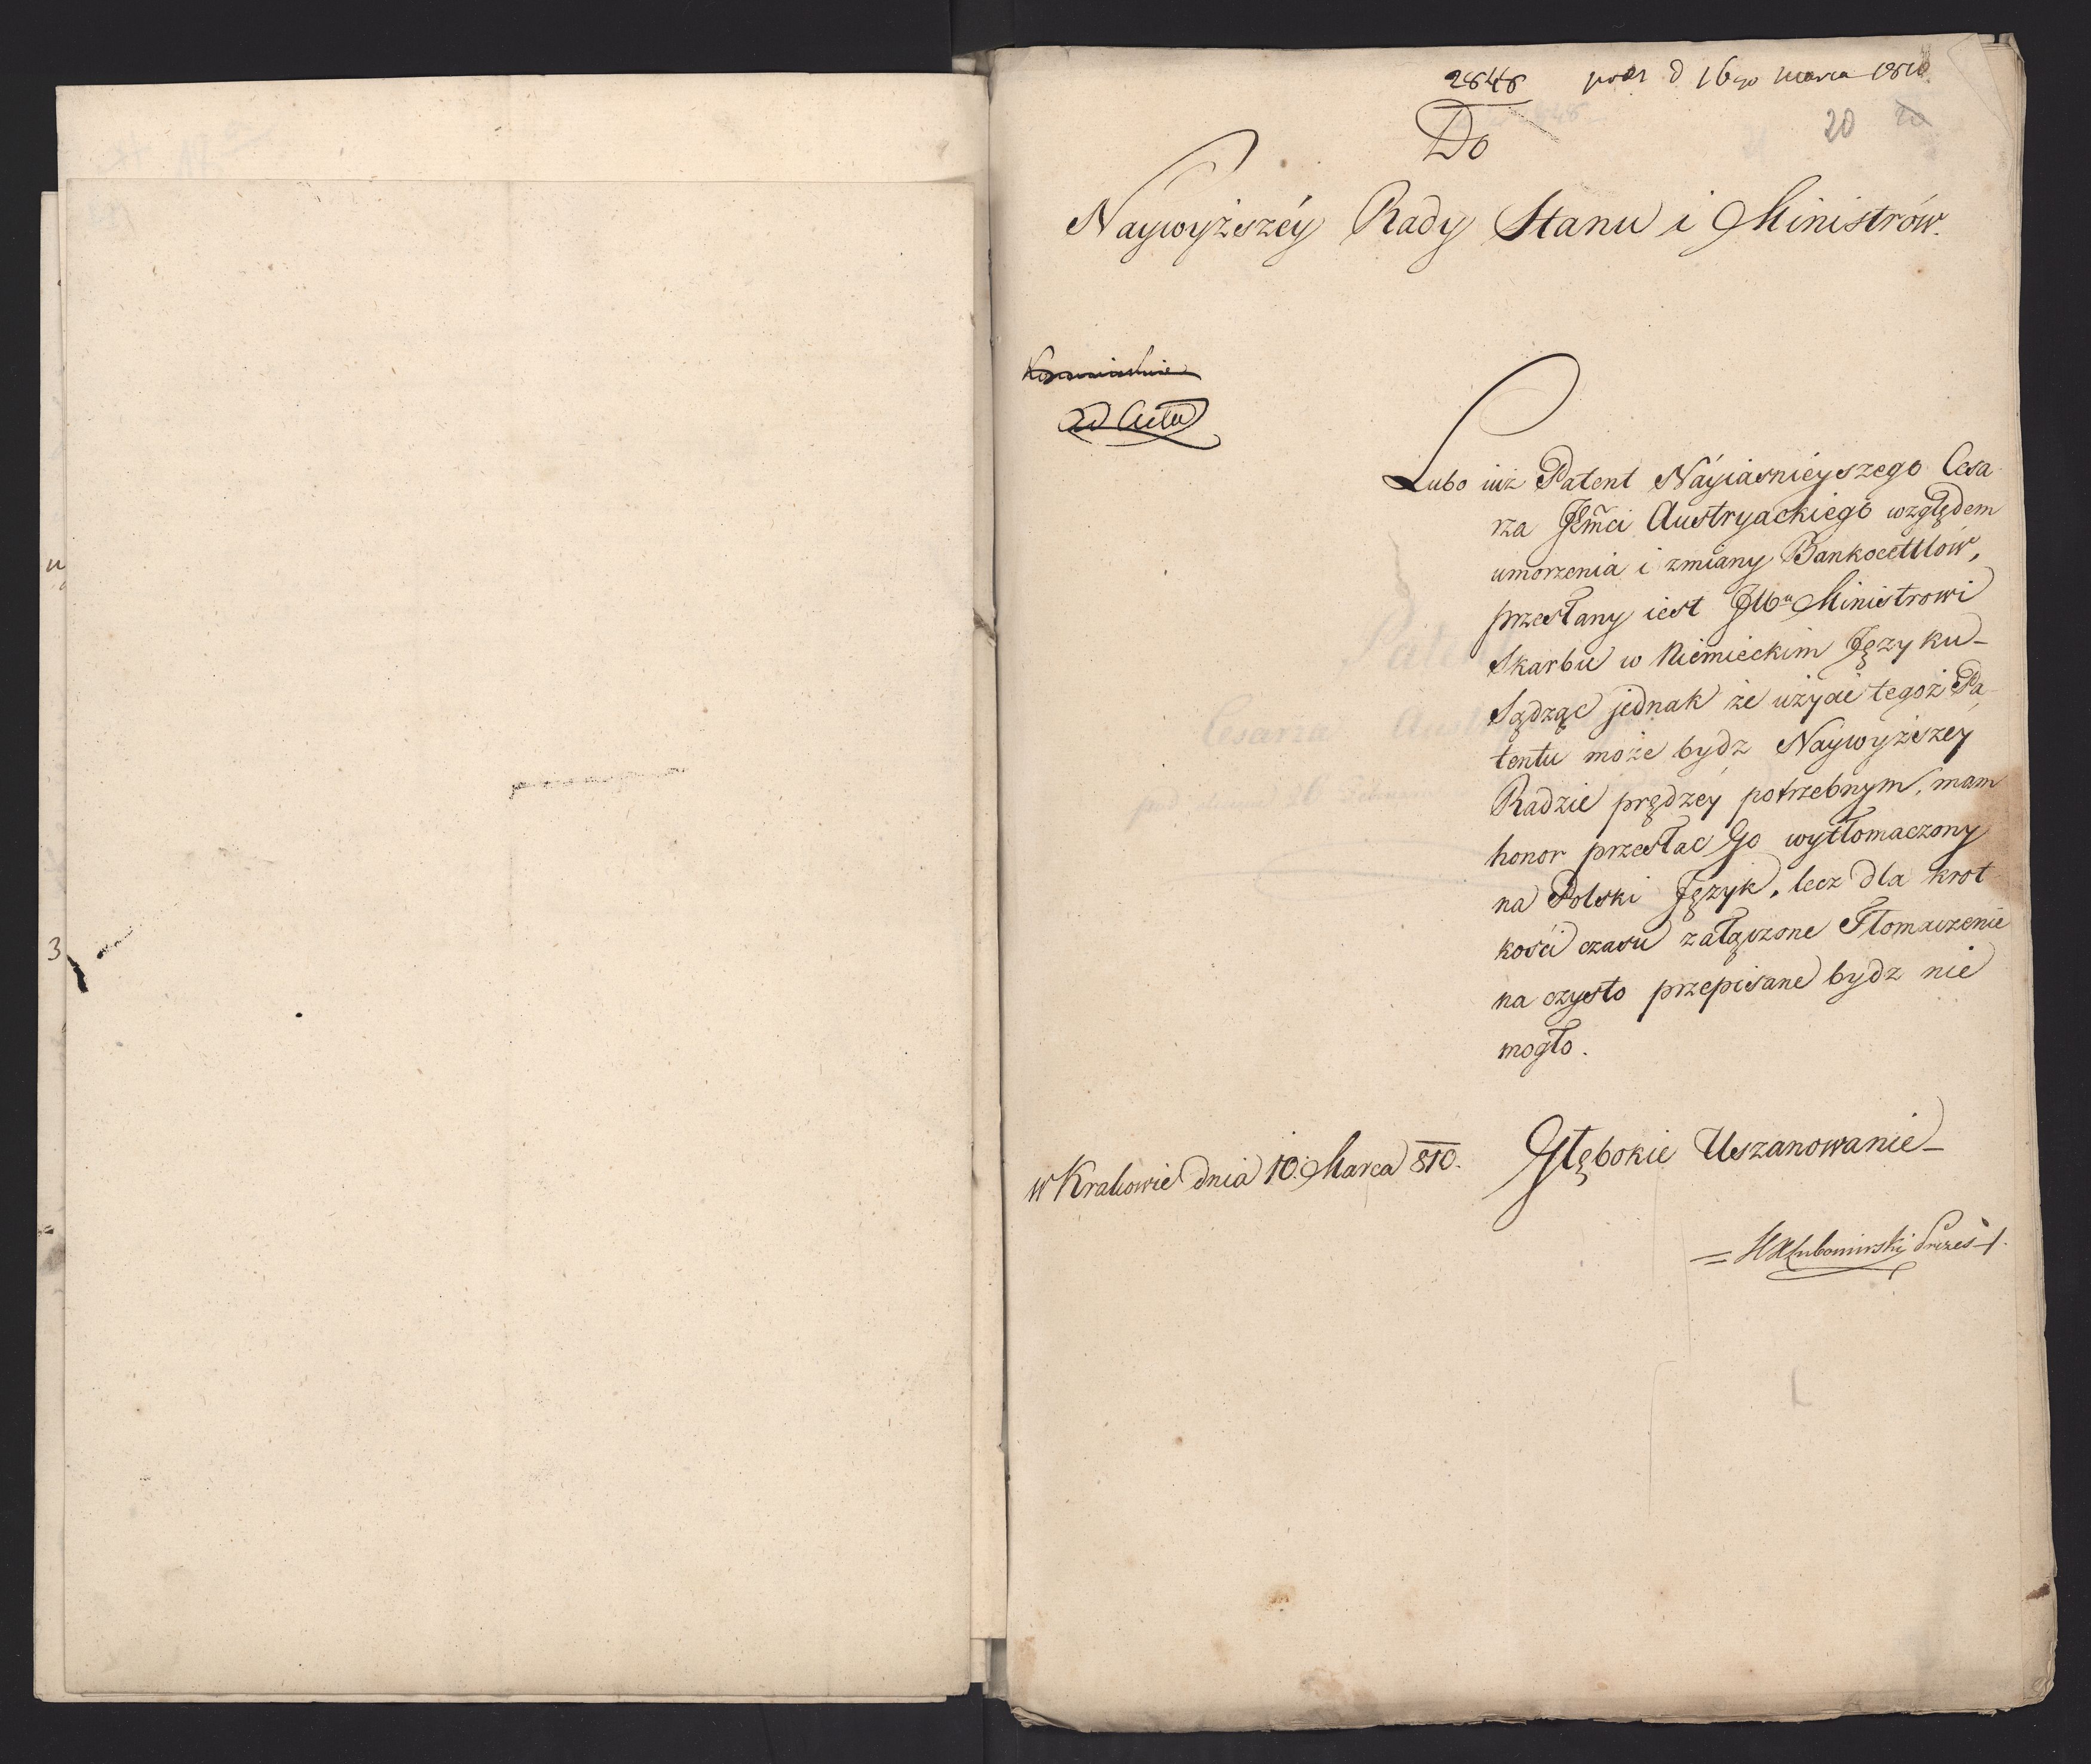 2848 prez d 16go marca 1810
20 20
Do
Naywyższéy Rady Stanu i Ministrów.
ad Acta
Lubo iuż Patent Náyiaśnieyszego Cesa
rza JEm̃ci Austryackiego względem
umorzenia i zmiany Bankocettlów,
przesłany iest JWu Ministrowi
Skarbu w Niemieckim Języku-
Sądząc jednak że użycie tegoż Pa
tentu może bydz Naywyższey
Radzie prędzéy potrzebnym, mam
honor przesłac Go wytłomaczony
na Polski Język, lecz dla krot
kości czasu załączone Tłomaczenie
na czysto przepisane bydz nie
mogło.
w Krakowie dnia 10. Marca 810. Głębokie Uszanowanie-
Lubomirski Prezes
u
3